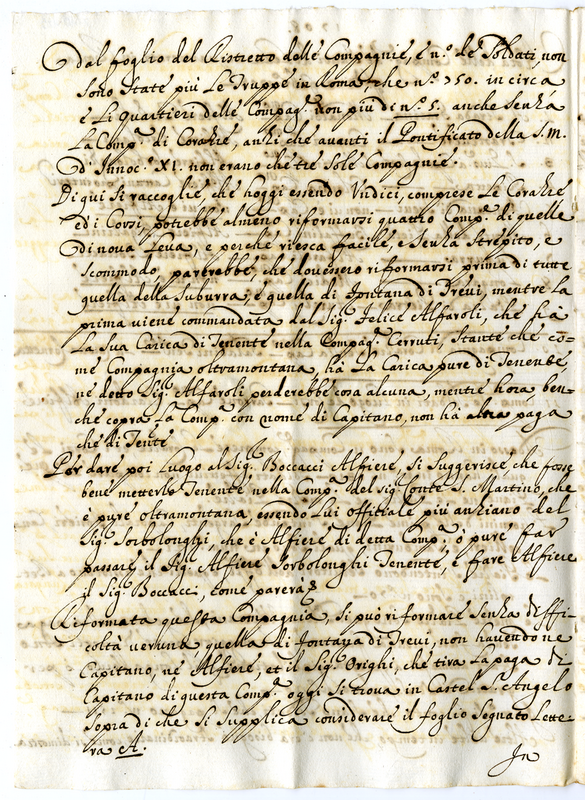 Dal foglio del Ristretto delle Compagnie, e n.º de Soldati non
sono state più Le Truppe in Roma, che n.º 750. in circa
e Li quartieri delle Compag.e non più di n.º 5. anche senza
La Comp.a di Corazze, anzi che avanti il Pontificato della S.M.
d'Innoc.º XI. non erano che tre sole Compagnie.
Di qui si raccoglie, che hoggi essendo Undici, comprese Le Corazze
ed i Corsi, potrebbe almeno riformarsi quattro Comp.e di quelle
di nova Leva, e perche riesca facile, e senza strepito, e
scommodo, parerebbe, che dovessero riformarsi prima di tutte
quella della Suburra, e quella di Fontana di Trevi, mentre La
prima viene commandata dal Sig.r Felice Alfaroli, che hà
La sua Carica di Tenente nella Compag.a Cerruti, stante che co=
me Compagnia oltramontana, hà La Carica pure di Tenente,
ne detto Sig.r Alfaroli perderebbe cosa alcuna, mentre hora ben=
che copra La Comp.a con nome di Capitano, non hà altra paga
che di Tente
Per dare poi Luogo al Sig.r Boccacci Alfiere, si suggerisce che fosse
bene metterlo Tenente nella Comp.a del sig.r Conte S. Martino, che
è pure oltramontana, essendo Lui offitiale più anziano del
Sig.r Sorbolonghi, che è Alfiere di detta Comp.a ò pure far
passare il Sig.r Alfiere Sorbolonghi Tenente, e fare Alfiere
il Sig.r Boccacci, come parerà
Riformata questa Compagnia, si può riformare senza diffi=
coltà veruna quella di Fontana di Trevi, non havendo ne
Capitano, ne Alfiere, et il Sig.r Orighi, che tira La paga di
Capitano di questa Comp.a oggi si trova in Castel S. Angelo
sopra di che si supplica considerare il foglio segnato Lette=
ra A.
In